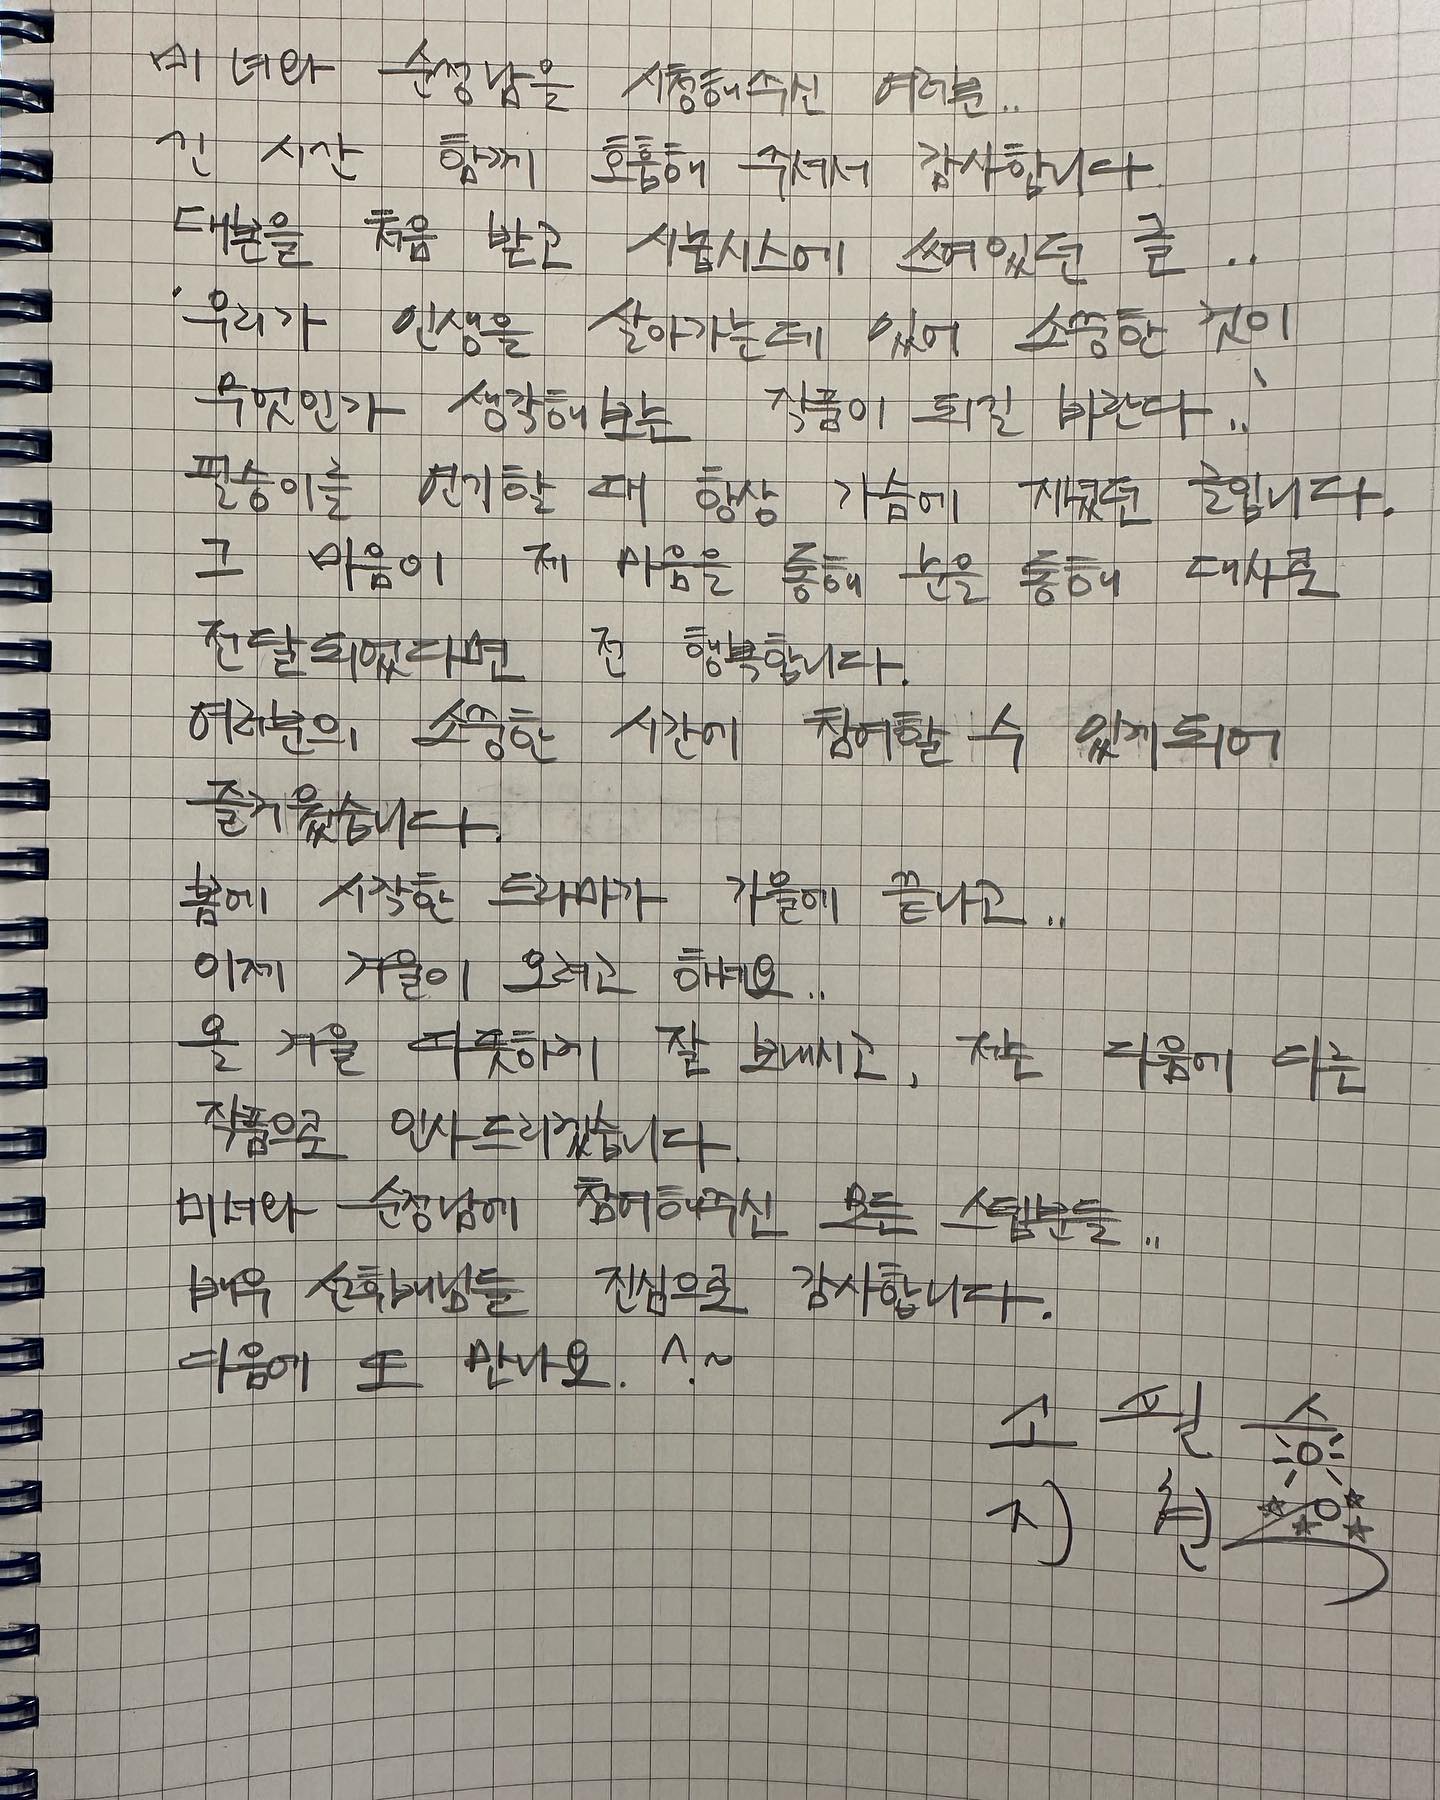 미녀와 순정남을 시청해주신 여러분..
긴 시간 함께 호흡해 주셔서 감사합니다.
대본을 처음 받고 시놉시스에 쓰여있던 글..
'우리가 인생을 살아가는데 있어 소중한 것이
무엇인가 생각해보는 작품이 되길 바란다..'
필승이를 연기할 때 항상 가슴에 새겼던 글입니다.
그 마음이 제 마음을 통해 눈을 통해 대사로
전달되었다면 전 행복합니다.
여러분의 소중한 시간에 참여할 수 있게되어
즐거웠습니다.
봄에 시작한 드라마가 가을에 끝나고..
이제 겨울이 오려고 하네요..
올 겨울 따뜻하게 잘 보내시고, 저는 다음에 다른
작품으로 인사드리겠습니다.
미녀와 순정남에 참여해주신 모든 스텝분들..
배우 선후배님들 진심으로 감사합니다.
다음에 또 만나요. ^.~
고 필 승
지 현 우